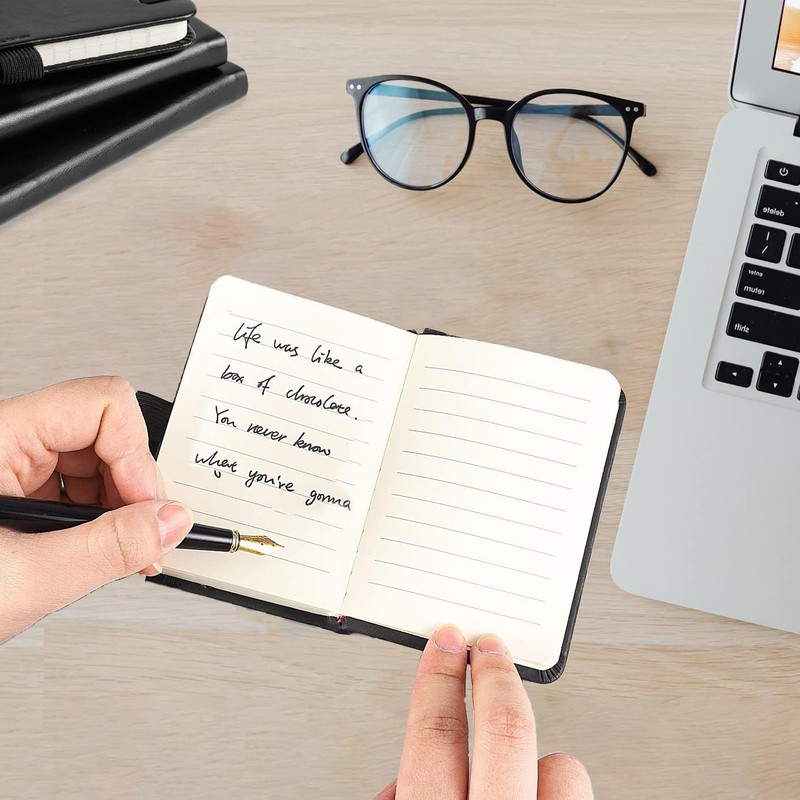 Life was like a
box of chocolate.
You never know
what you're gonna
delete
return
shift